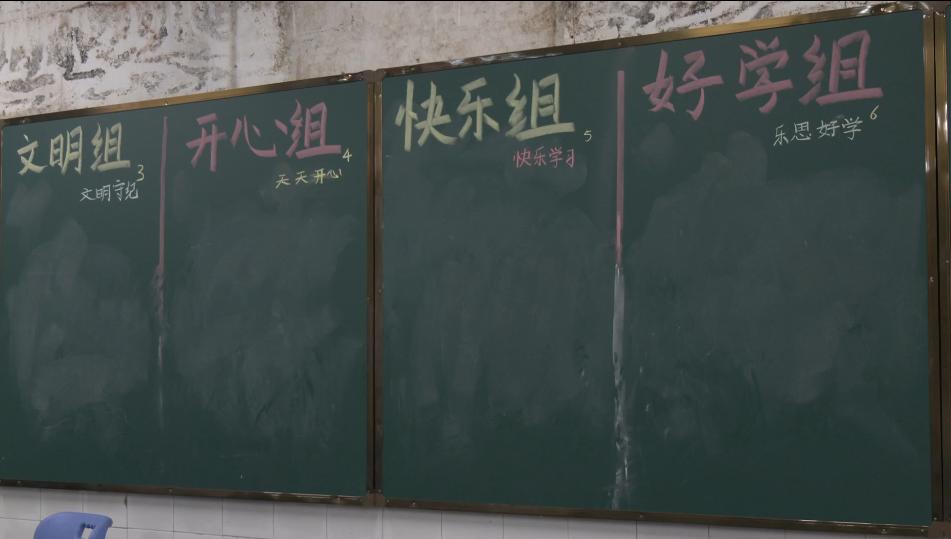 文明组
3
文明守纪
开心组
4
天天开心
快乐组
5
快乐学习
好学组
6
乐思好学